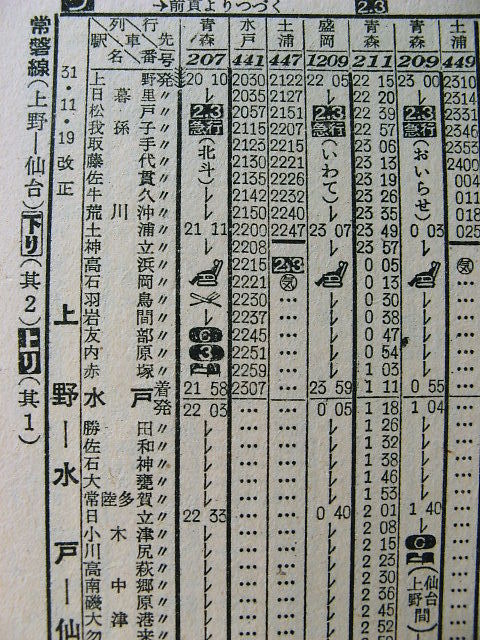 →前頁よりつづく
2.3
常磐線(上野―仙台)下り(其2)上り(其1)
31・11・19改正
上野―水戸―仙
行先 青森 水戸 土浦 盛岡 青森 青森 土浦
列車番号 207 441 447 1209 211 209 449
駅名
上野発 20 10 2030 2122 22 05 22 15 23 00 2310
日暮里〃 2035 2127 22 20 2314
松戸〃 2.3 2057 2151 2.3 22 39 2.3 2331
我孫子〃 急行 2115 2207 急行 22 57 急行 2346
取手〃 (北斗) 2123 2215 (いわて) 23 06 (おいらせ) 2353
藤代〃 2130 2221 23 13 2400
佐貫〃 2135 2226 23 19 004
牛久〃 2142 2232 23 26 011
荒川沖〃 2150 2240 23 35 018
土浦〃 21 11 2200 2247 23 07 23 49 0 03 025
神立〃 2208 23 57
高浜〃 2215 2.3 0 05
石岡〃 2221 0 13
羽鳥〃 2230 … 0 30 …
岩間〃 2237 … 0 38 …
友部〃 C 2245 … 0 47 …
内原〃 3 2251 … 0 54 …
赤塚〃 2259 … 1 03 …
水戸着 21 58 2307 … 23 59 1 11 0 55 …
発 22 03 … … 0 05 1 18 1 04 …
勝田〃 … … 1 26 …
佐和〃 … … 1 32 …
石神〃 … … 1 38 …
大甕〃 … … 1 46 …
常陸多賀〃 … … 1 53 …
日立〃 22 33 … … 0 40 2 01 1 40 …
小木津〃 … … 2 08 …
川尻〃 … … 2 15 C …
高萩〃 … … 2 23 …
南中郷〃 … … 2 30 (仙台上野間) …
磯原〃 … … 2 36 …
大津港〃 … … 2 45 …
勿来〃 … … 2 52 …